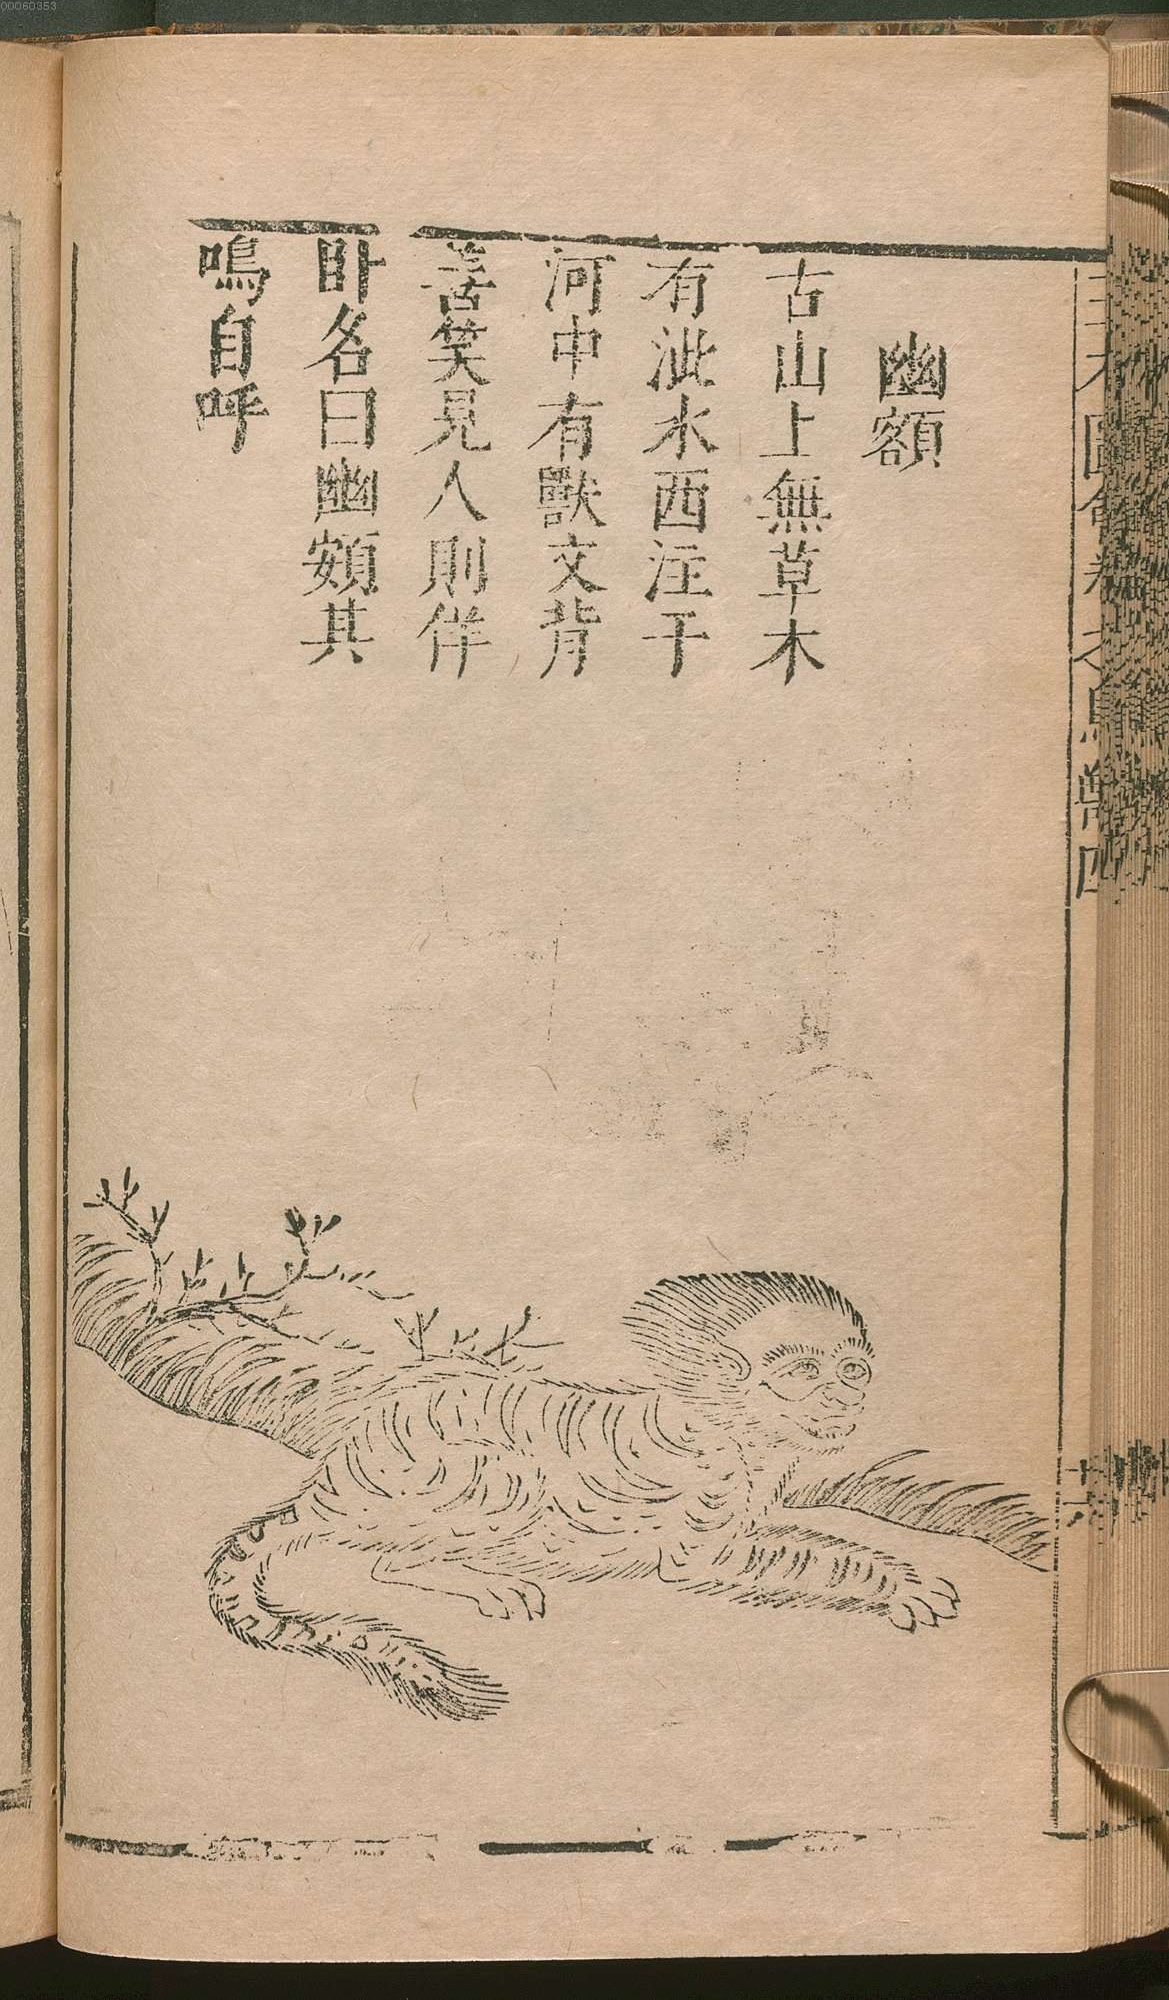 00060353
幽額
古山上無草木
有泚水西注于
河中有獸文背
善笑見人則佯
卧名曰幽頞其
鳴自呼